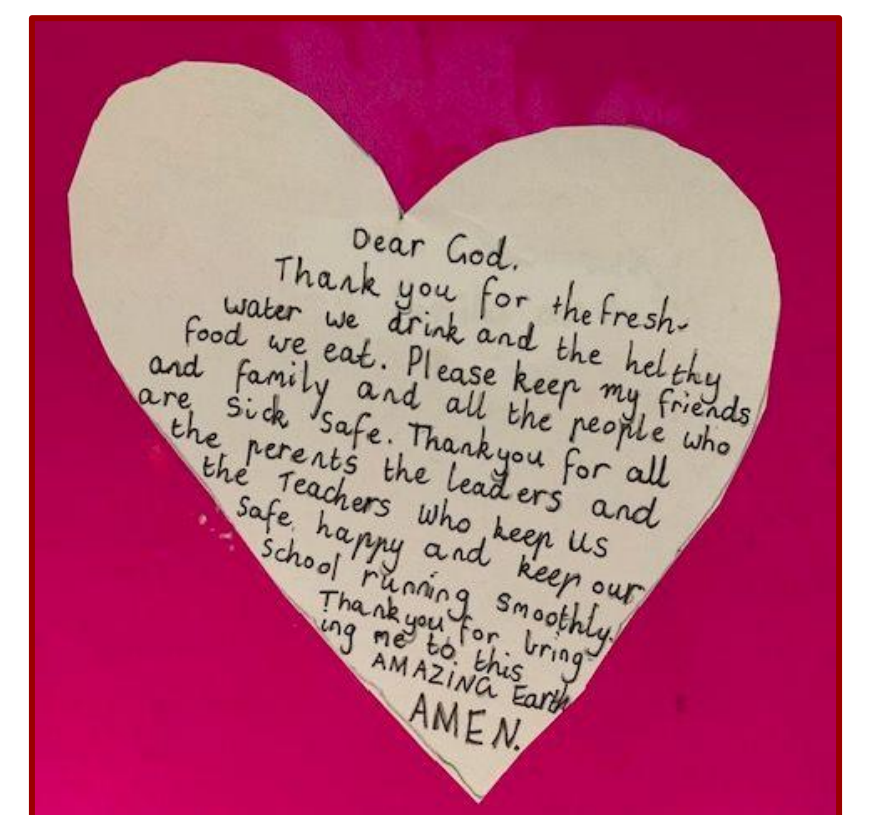 Dear God.
Thank you for the fresh
water we drink and the helthy
food we eat. Please keep my friends
and family and all the people who
are sick safe. Thankyou for all
the perents the leaders and
the Teachers who keep us
safe, happy and keep our
School running smoothly.
Thankyou for bring-
ing me to this
AMAZING Earth
AMEN.